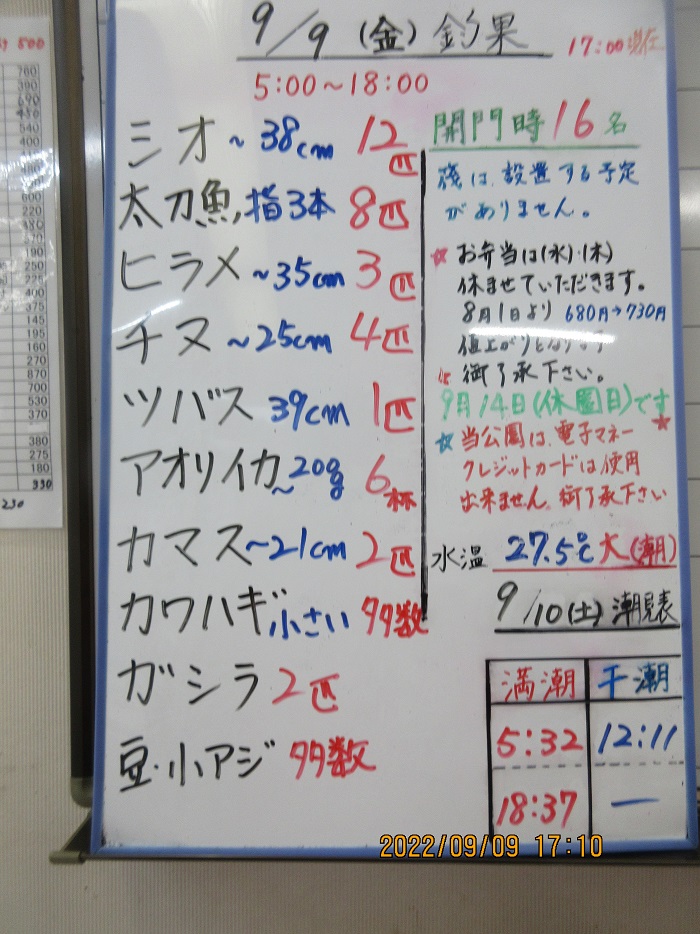 9/9 (金) 釣果
17:00現在
5:00～18:00
シオ ～38cm 12匹
太刀魚, 指3本 8匹
ヒラメ ～35cm 3匹
チヌ ～25cm 4匹
ツバス 39cm 1匹
アオリイカ ～20g 6杯
カマス ～21cm 2匹
カワハギ 小さい 多数
ガシラ 2匹
豆・小アジ 多数
開門時 16名
は、設置する予定
がありません。
☆ お弁当は(水)・(木)
休ませていただきます。
8月1日より 680円→730円
値上がりとなります
御了承下さい。
9月14日(休園日)です
☆ 当公園は、電子マネー ★
クレジットカードは使用
出来ません。御了承下さい
水温 27.5℃ 大(潮)
9/10(土) 潮見表
満潮 干潮
5:32 12:11
18:37 ー
2022/09/09 17:10
500
760
390
690
430
540
400
600
220
480
190
250
225
400
375
145
195
160
270
870
700
530
370
380
275
180
330
230